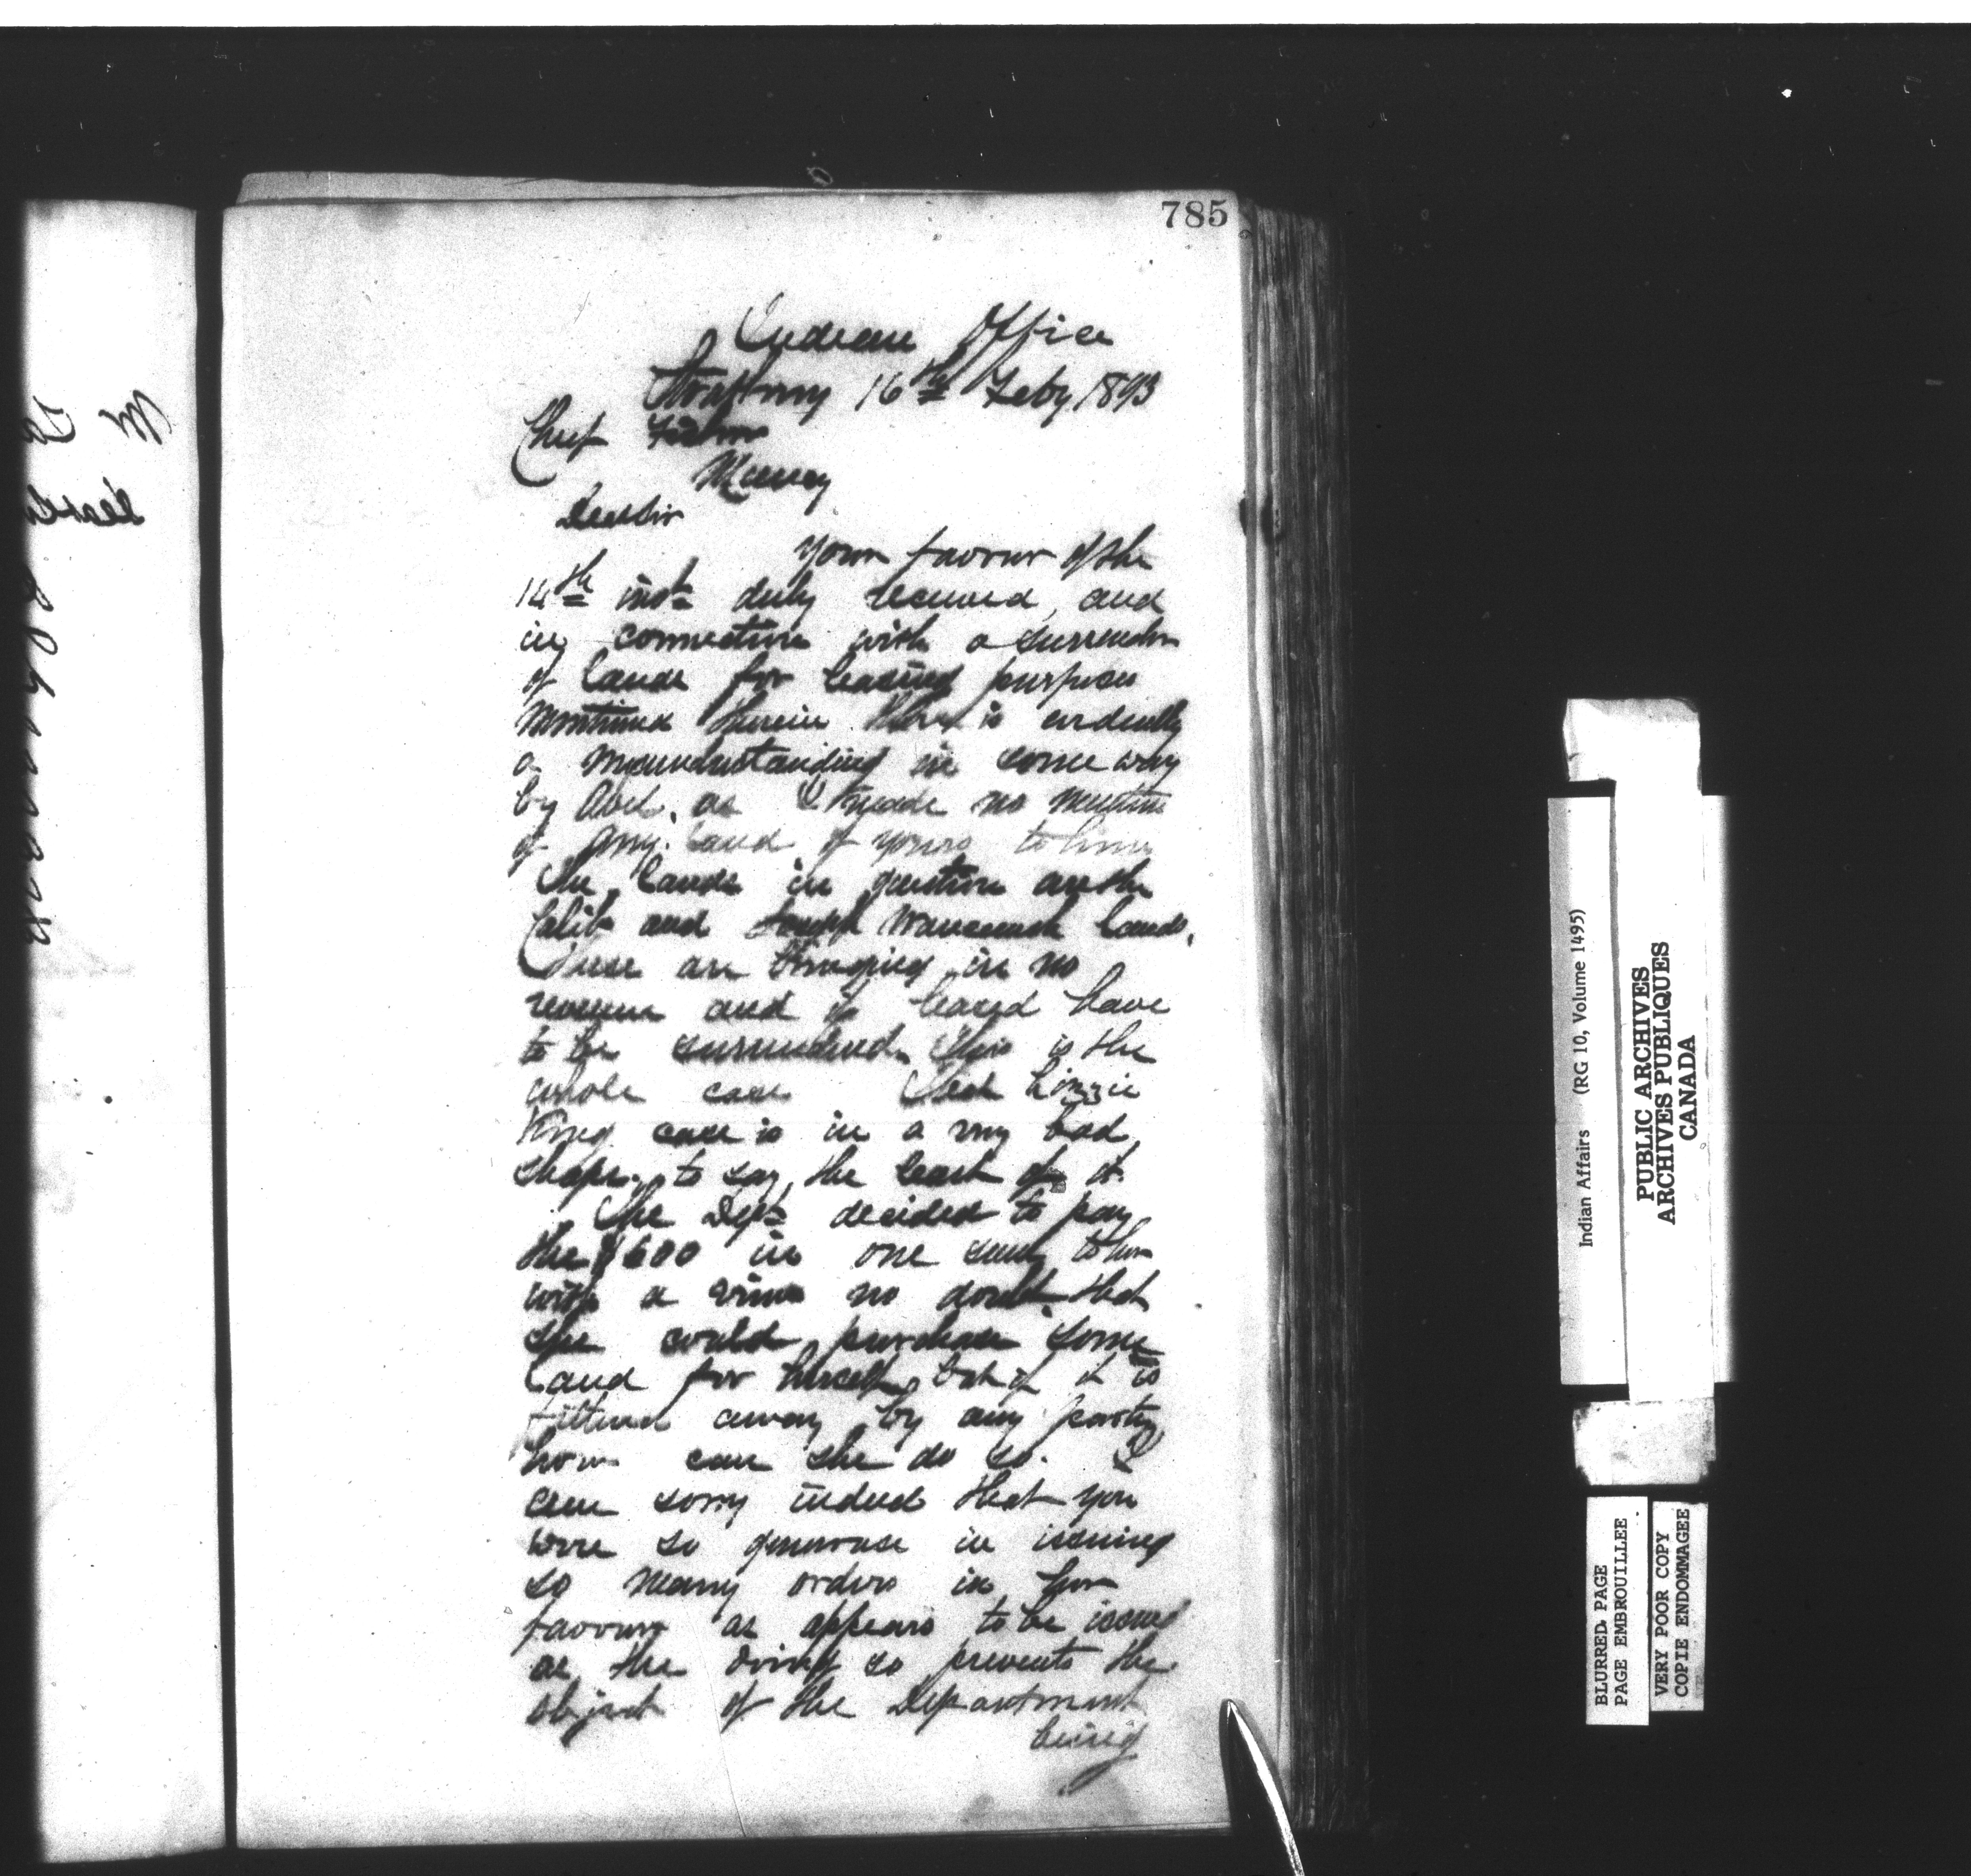 785
Indian Office
Strathroy 16th Feby 1893
Chief Fisher
Muncey
Dear Sir
Your favour of the
14th inst duly received, and
in connection with a surrender
of lands for leasing purposes
mentioned therein there is evidently
a misunderstanding in some way
by Abel. as I made no mention
of any land of yours to him
The lands in question are the
Calib and Joseph lands.
These are bringing in no
revenue and if leased have
to be surrendered. This is the
whole case That Lizzie
King case is in a very bad
shape. to say the least of it.
The Dept decided to pay
the $600 in one sum to her
with a view no doubt that
she could purchase some
land for herself, but if it is
fittered away by any party
how can she do so. I
am sorry indeed that you
were so generous in issuing
so many orders in her
favour as appears to be issued
as the doing so prevents the
object of the Department
being
Indian Affairs (RG 10, Volume 1495)
PUBLIC ARCHIVES
ARCHIVES PUBLIQUES
CANADA
BLURRED PAGE
PAGE EMBROUILLEE
VERY POOR COPY
COPIE ENDOMMAGEE